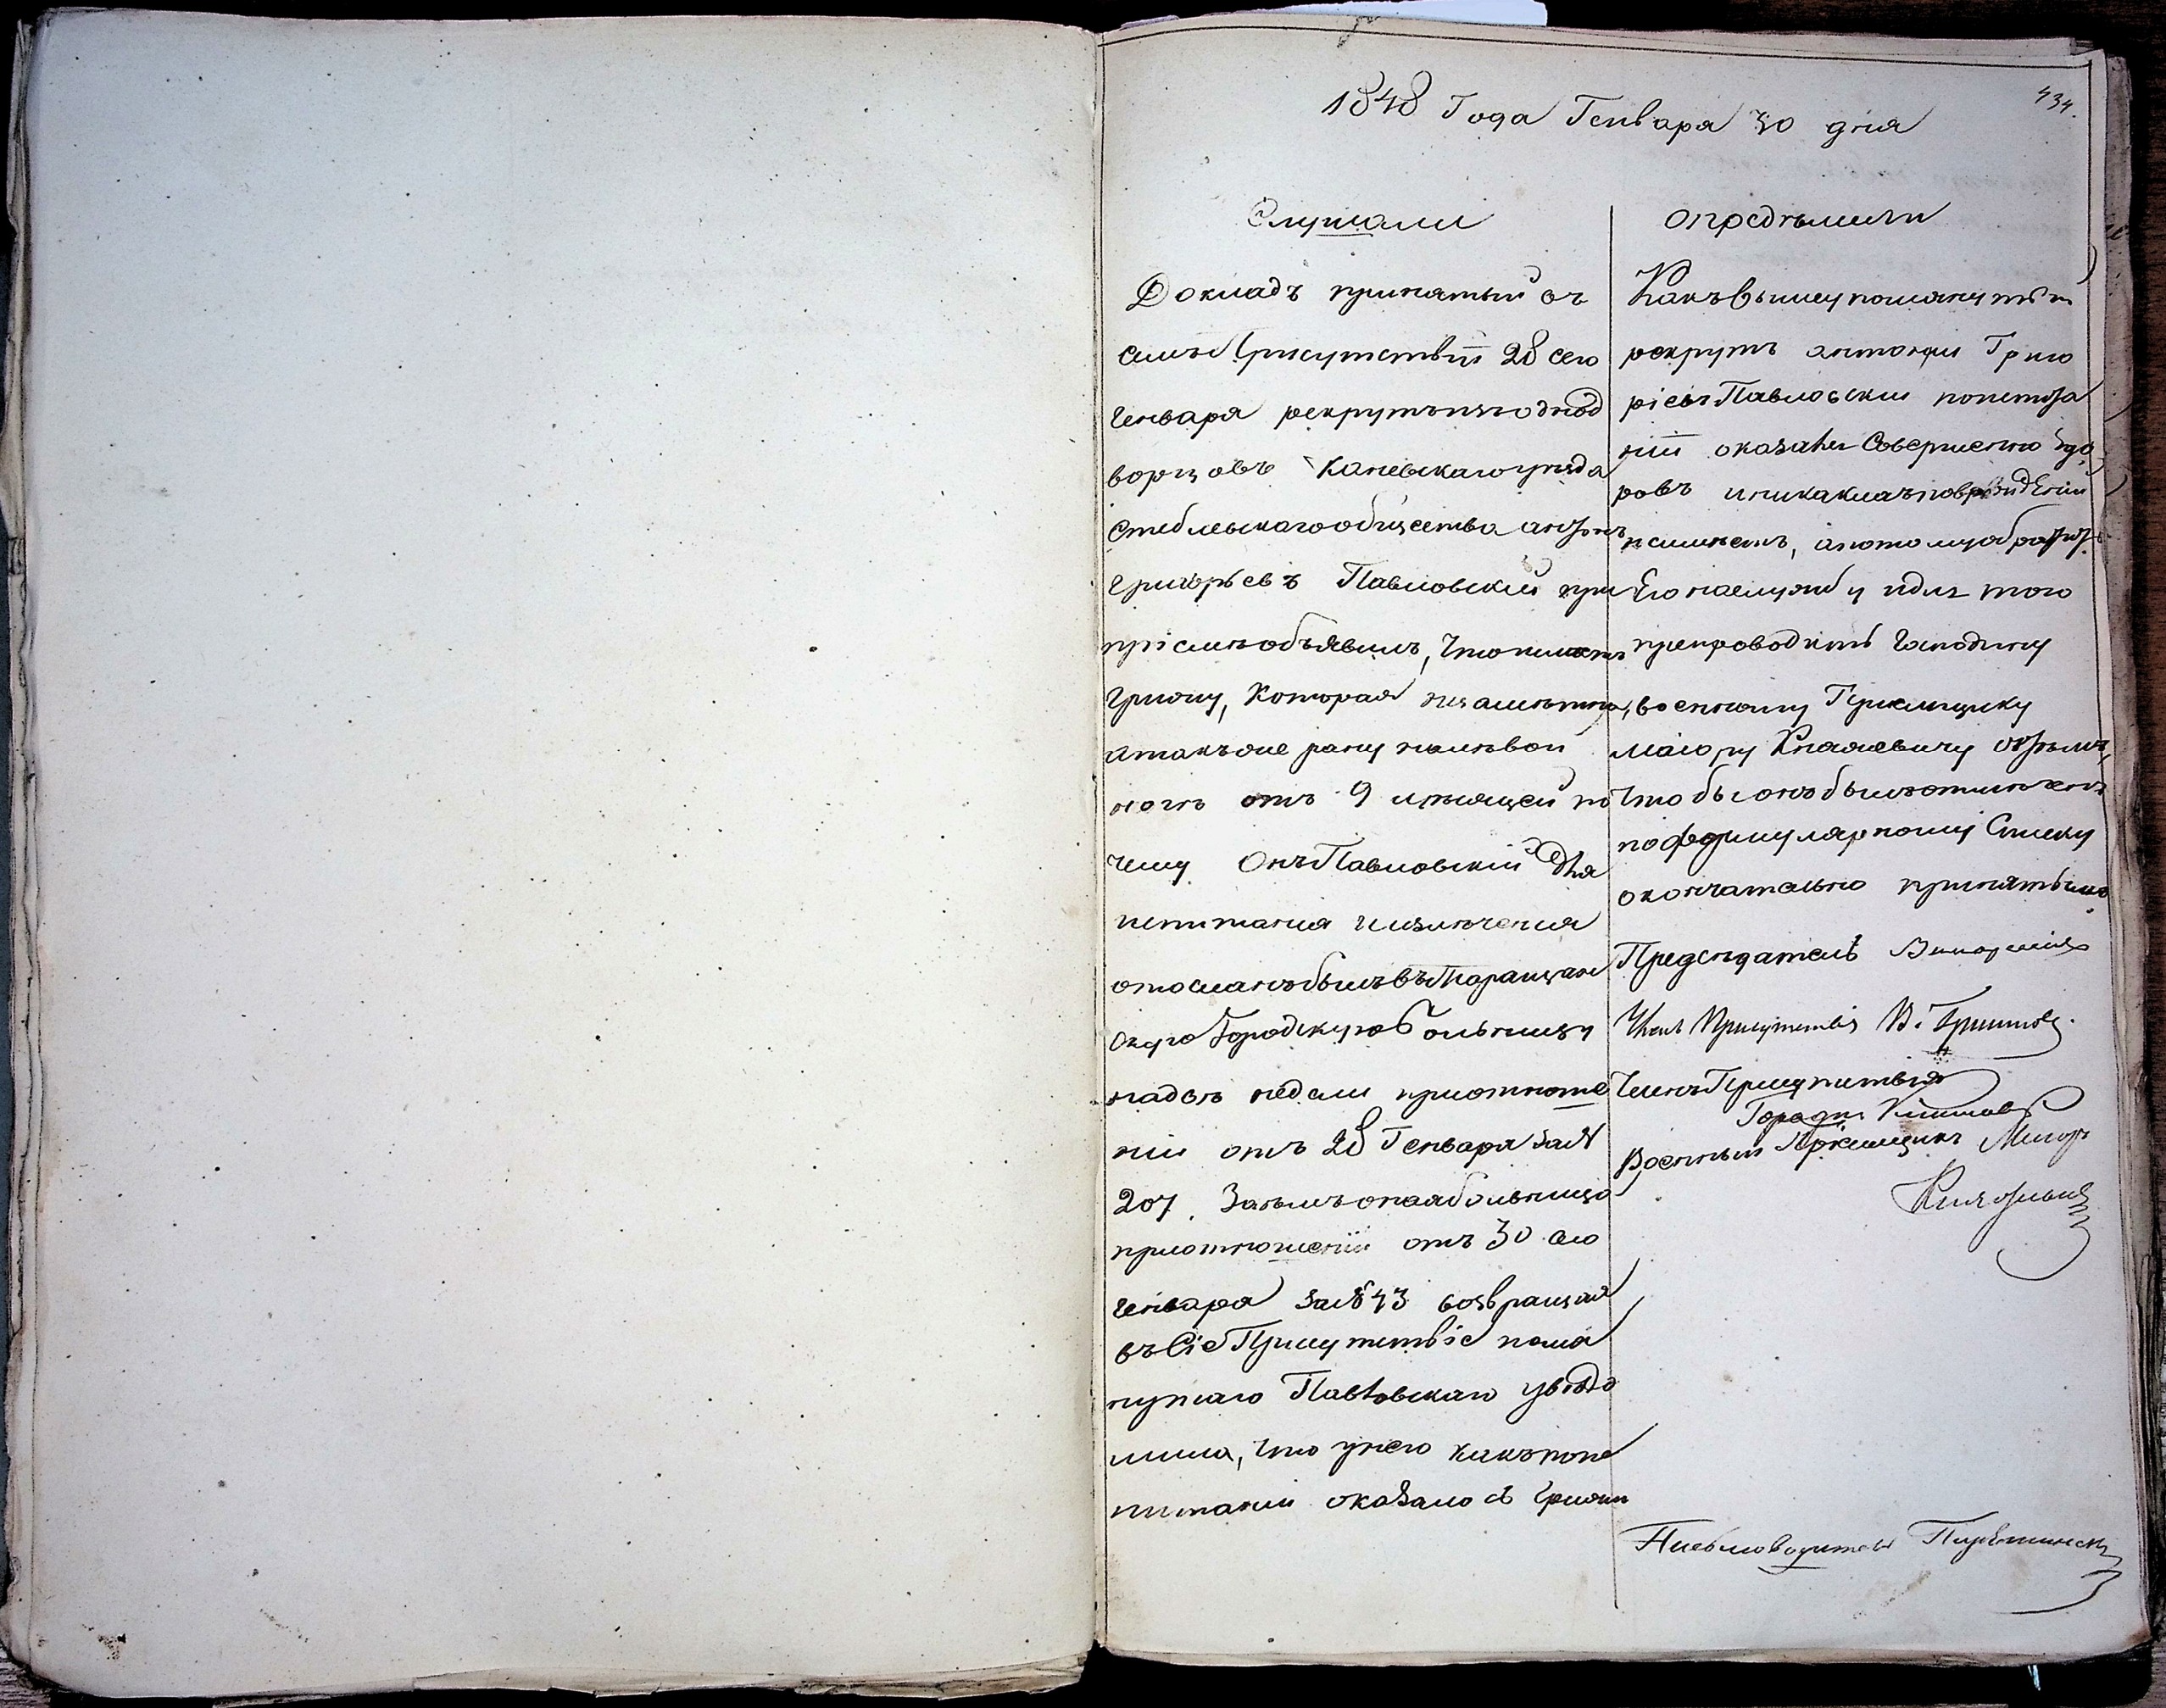 434.
1848 Года Генваря 30 дня
Слушали
Докладъ принятый въ
семъ Присутствіи 28 сего
Генваря рекрутъ изъ однод
ворцовъ Каневскаго уезда
Стеблевскаго общества Антонъ
Григорьевъ Павловскій при
пріемѣ объявилъ, что имѣетъ
грыжу, которая незаметна,
а также рану на левой
ногѣ отъ 9 месяцей по
чему Онъ Павловскій для
испитанія и излеченія
отосланъ былъ въ Таращан
скую Городскую больницу
на двѣ недели при отноше
ніи отъ 28 Генваря за №
207. Затемъ оная больница
при отношеніи отъ 30 сего
Генваря за № 43 возвращая
въ Сіе Присутствіе помя
нутаго Павловскаго уведо
мила, что у него какъ по ис
питаніи оказалось грыжи
определили
Какъ вышеупомянутый
рекрутъ Антоній Григо
ріевъ Павловскій по испыта
ніи оказался Совершенно Здо
ровъ и никакихъ повреждЕній
не имѣетъ, а потому обратить
Его на службу и для того
препроводить Господину
военному Пріемщику
маіору Князевичу съ тѣмъ,
что бы онъ былъ отмѣченъ
по формулярному Списку
окончательно принятымъ.
Председатель
Членъ Присутствія В.
Членъ Присутствія
Военный Пріемщикъ Маіоръ
Князевичъ
Писмоводитель